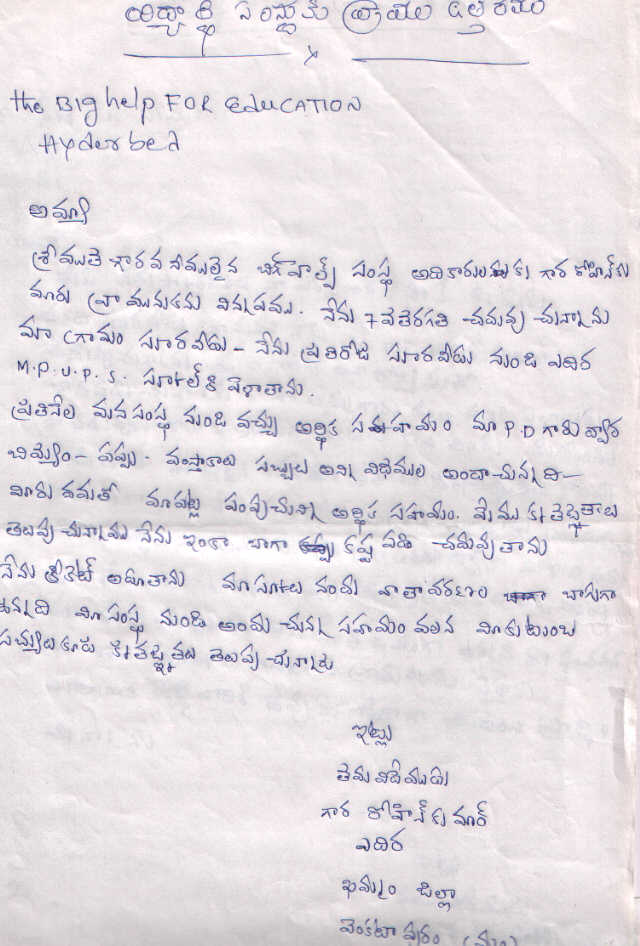 విద్యార్థి సంస్థకు వ్రాయు ఉత్తరము
the BIG help FOR EDUCATION
Hyderbed
అమ్మా
శ్రీయుత గౌరవనీయులైన బిగ్ హెల్ప్ సంస్థ అధికారులకు గార రోహిత్ కు
మారు వ్రాయునది విన్నపము. నేను 7వ తరగతి చదువుచున్నాను
మా గ్రామం సూరవీడు - నేను ప్రతిరోజు సూరవీడు నుండి ఎదిర
M.P.U.P.S. స్కూల్ కి వెళాతాను.
ప్రతినెల మన సంస్థ నుండి వచ్చు ఆర్థిక సహాయం మా P.D గారు ద్వార
బియ్యం - పప్పు - పుస్తకాలు సబ్బులు అన్ని విధముల అందుచున్నది -
మీరు దయతో మాపట్ల పంపుచున్న ఆర్థిక సహాయం. మేము కృతజ్ఞతలు
తెలుపుచున్నాము నేను ఇంకా బాగా కష్ట పడి చదువుతాను
నేను క్రికెట్ ఆడూతాను మా స్కూలు నందు వాతావరణం బాగుగా
ఉన్నది మీ సంస్థ నుండి అందుచున్న సహాయం వలన మా కుటుంబ
సభ్యులు కూడు కృతజ్ఞతలు తెలుపుచున్నారు
ఇట్లు
తమ విదేయుడు
గార రోహిత్ కుమార్
ఎదిర
ఖమ్మం జిల్లా
వెంకటాపురం (మం)